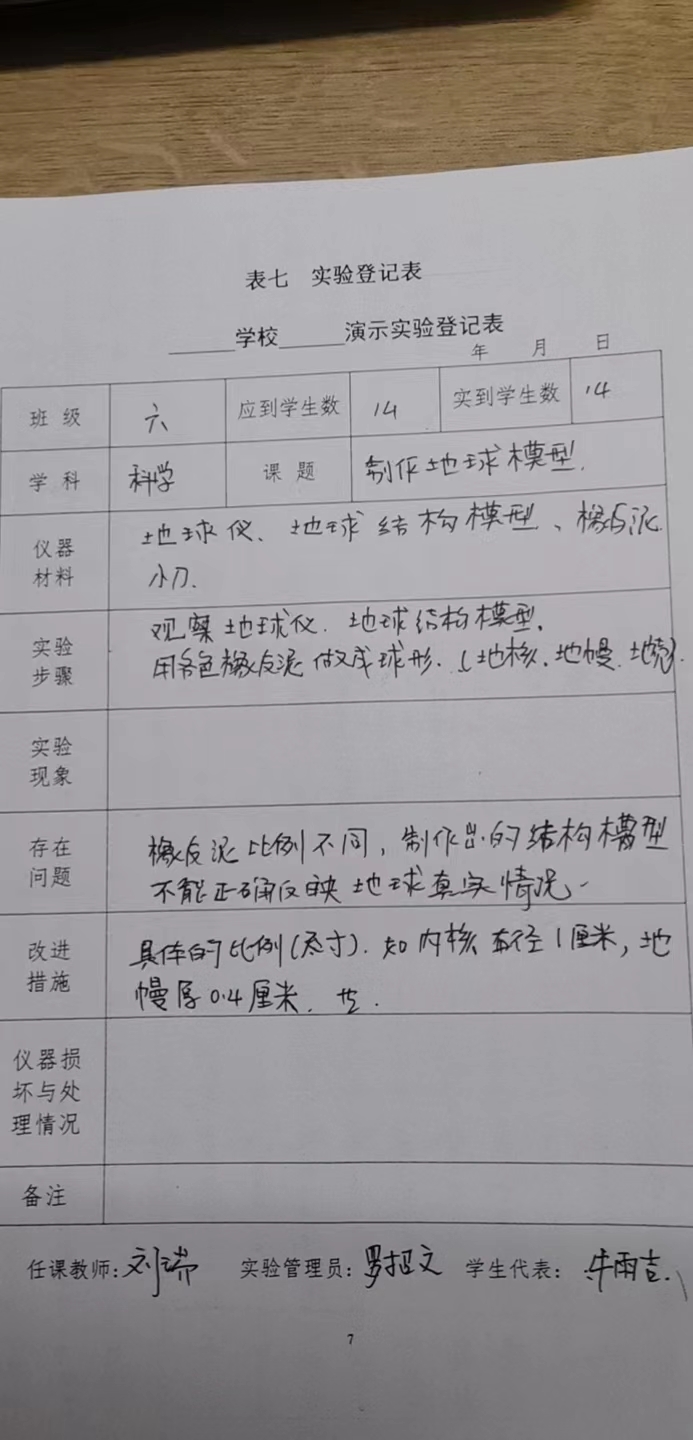 表七 实验登记表
______学校______演示实验登记表
年 月 日
班 级 六 应到学生数 14 实到学生数 14
学 科 科学 课 题 制作地球模型.
仪器
材料
地球仪、地球结构模型、橡皮泥
小刀.
实验
步骤
观察地球仪.地球结构模型.
用各色橡皮泥做成球形.(地核.地幔.地壳).
实验
现象
存在
问题
橡皮泥比例不同,制作出的结构模型
不能正确反映地球真实情况.
改进
措施
具体的比例(尺寸).如内核直径1厘米,地
幔厚0.4厘米.
仪器损
坏与处
理情况
备注
任课教师:刘瑞 实验管理员:罗招文 学生代表:牛雨吉.
7